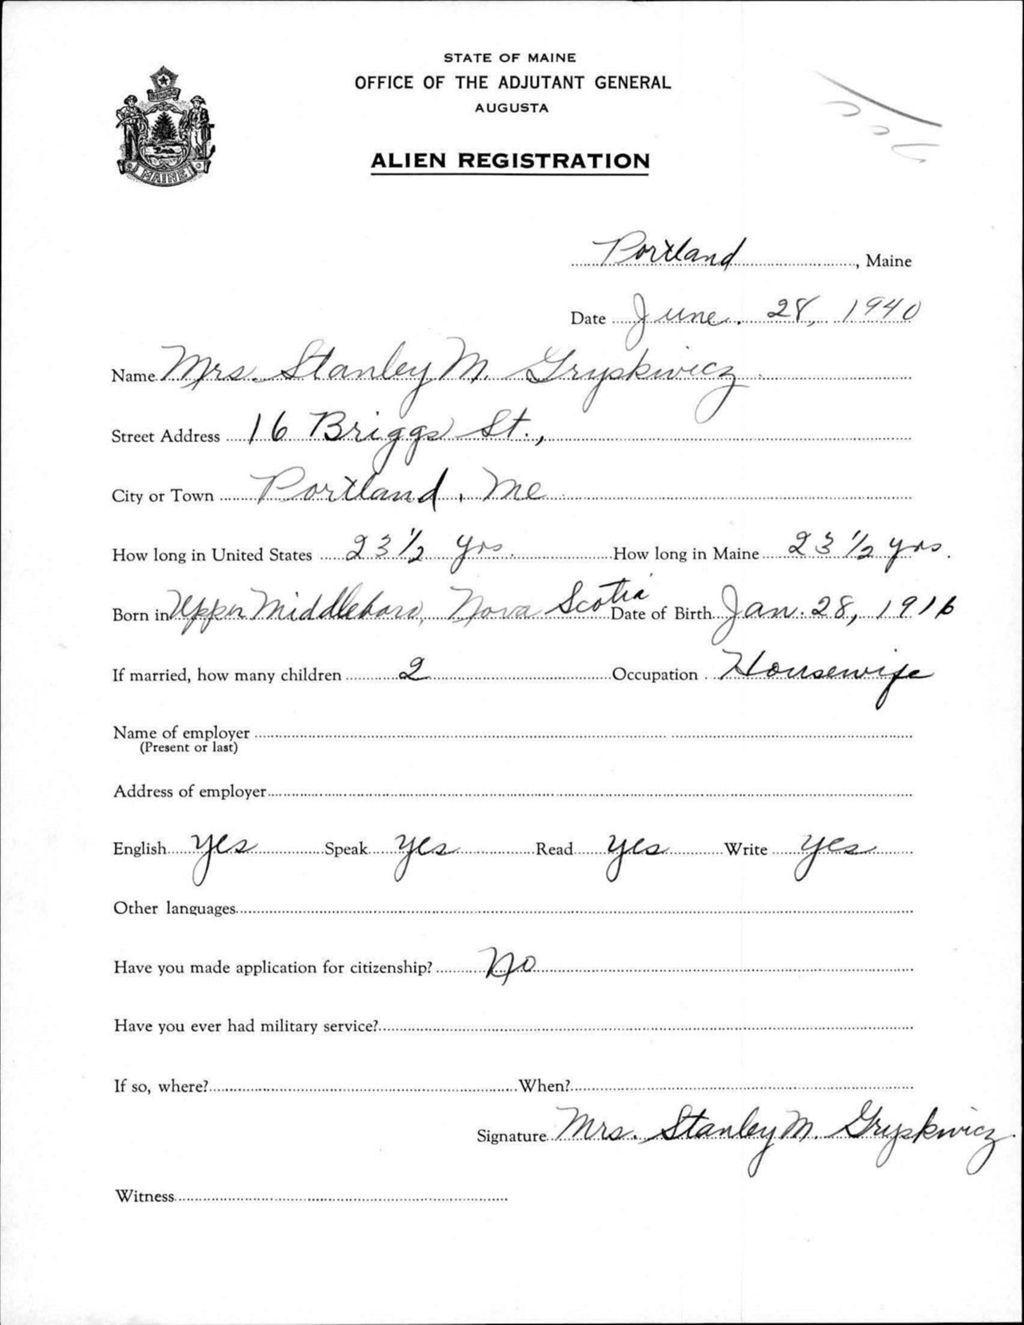 STATE OF MAINE
OFFICE OF THE ADJUTANT GENERAL
AUGUSTA
ALIEN REGISTRATION
MAINE
Portland, Maine
Date June. 28, 1940
Name Mrs. Stanley M. Gryskwicz
Street Address 16 Briggs St.,
City or Town Portland, Me
How long in United States 23 1/2 yrs. How long in Maine 23 1/2 yrs.
Born in Upper Middleboro, Nova Scotia Date of Birth Jan. 28, 1916
If married, how many children 2 Occupation Housewife
Name of employer
(Present or last)
Address of employer
English yes Speak yes Read yes Write yes
Other languages
Have you made application for citizenship? No
Have you ever had military service?
If so, where? When?
Signature Mrs. Stanley M. Gryskwicz
Witness